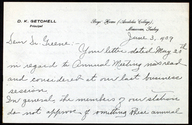 D. K. GETCHELL
Principal
Boys' Home (Anatolia College)
Merzifoun, Turkey
June 3, 1929
Dear Dr. Greene:
Your letter dated May 20th
in regard to Annual Meeting was read
and considered at our last business
session.
In general, the members of our station
do not approve of omitting these annual